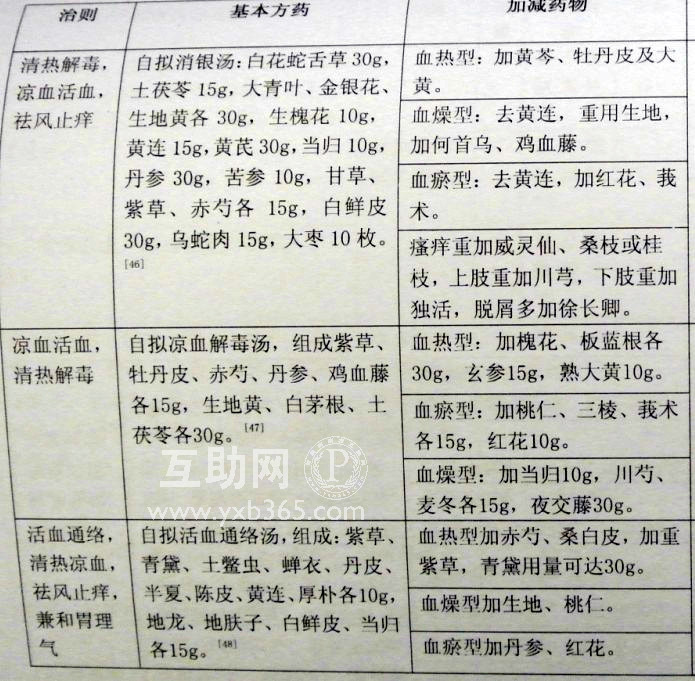 治则
基本方药
加减药物
清热解毒，
凉血活血，
祛风止痒
自拟消银汤：白花蛇舌草30g，
土茯苓15g，大青叶、金银花、
生地黄各30g，生槐花10g，
黄连15g，黄芪30g，当归10g，
丹参30g，苦参10g，甘草、
紫草、赤芍各15g，白鲜皮
30g，乌蛇肉15g，大枣10枚。
[46]
血热型：加黄芩、牡丹皮及大
黄。
血燥型：去黄连，重用生地，
加何首乌、鸡血藤。
血瘀型：去黄连，加红花、莪
术。
瘙痒重加威灵仙、桑枝或桂
枝，上肢重加川芎，下肢重加
独活，脱屑多加徐长卿。
凉血活血，
清热解毒
自拟凉血解毒汤，组成紫草、
牡丹皮、赤芍、丹参、鸡血藤
各15g，生地黄、白茅根、土
茯苓各30g。[47]
血热型：加槐花、板蓝根各
30g，玄参15g，熟大黄10g。
血瘀型：加桃仁、三棱、莪术
各15g，红花10g。
血燥型：加当归10g，川芎、
麦冬各15g，夜交藤30g。
活血通络，
清热凉血，
祛风止痒，
兼和胃理
气
自拟活血通络汤，组成：紫草、
青黛、土鳖虫、蝉衣、丹皮、
半夏、陈皮、黄连、厚朴各10g，
地龙、地肤子、白鲜皮、当归
各15g。[48]
血热型加赤芍、桑白皮，加重
紫草，青黛用量可达30g。
血燥型加生地、桃仁。
血瘀型加丹参、红花。
互助网
www.yxb365.com